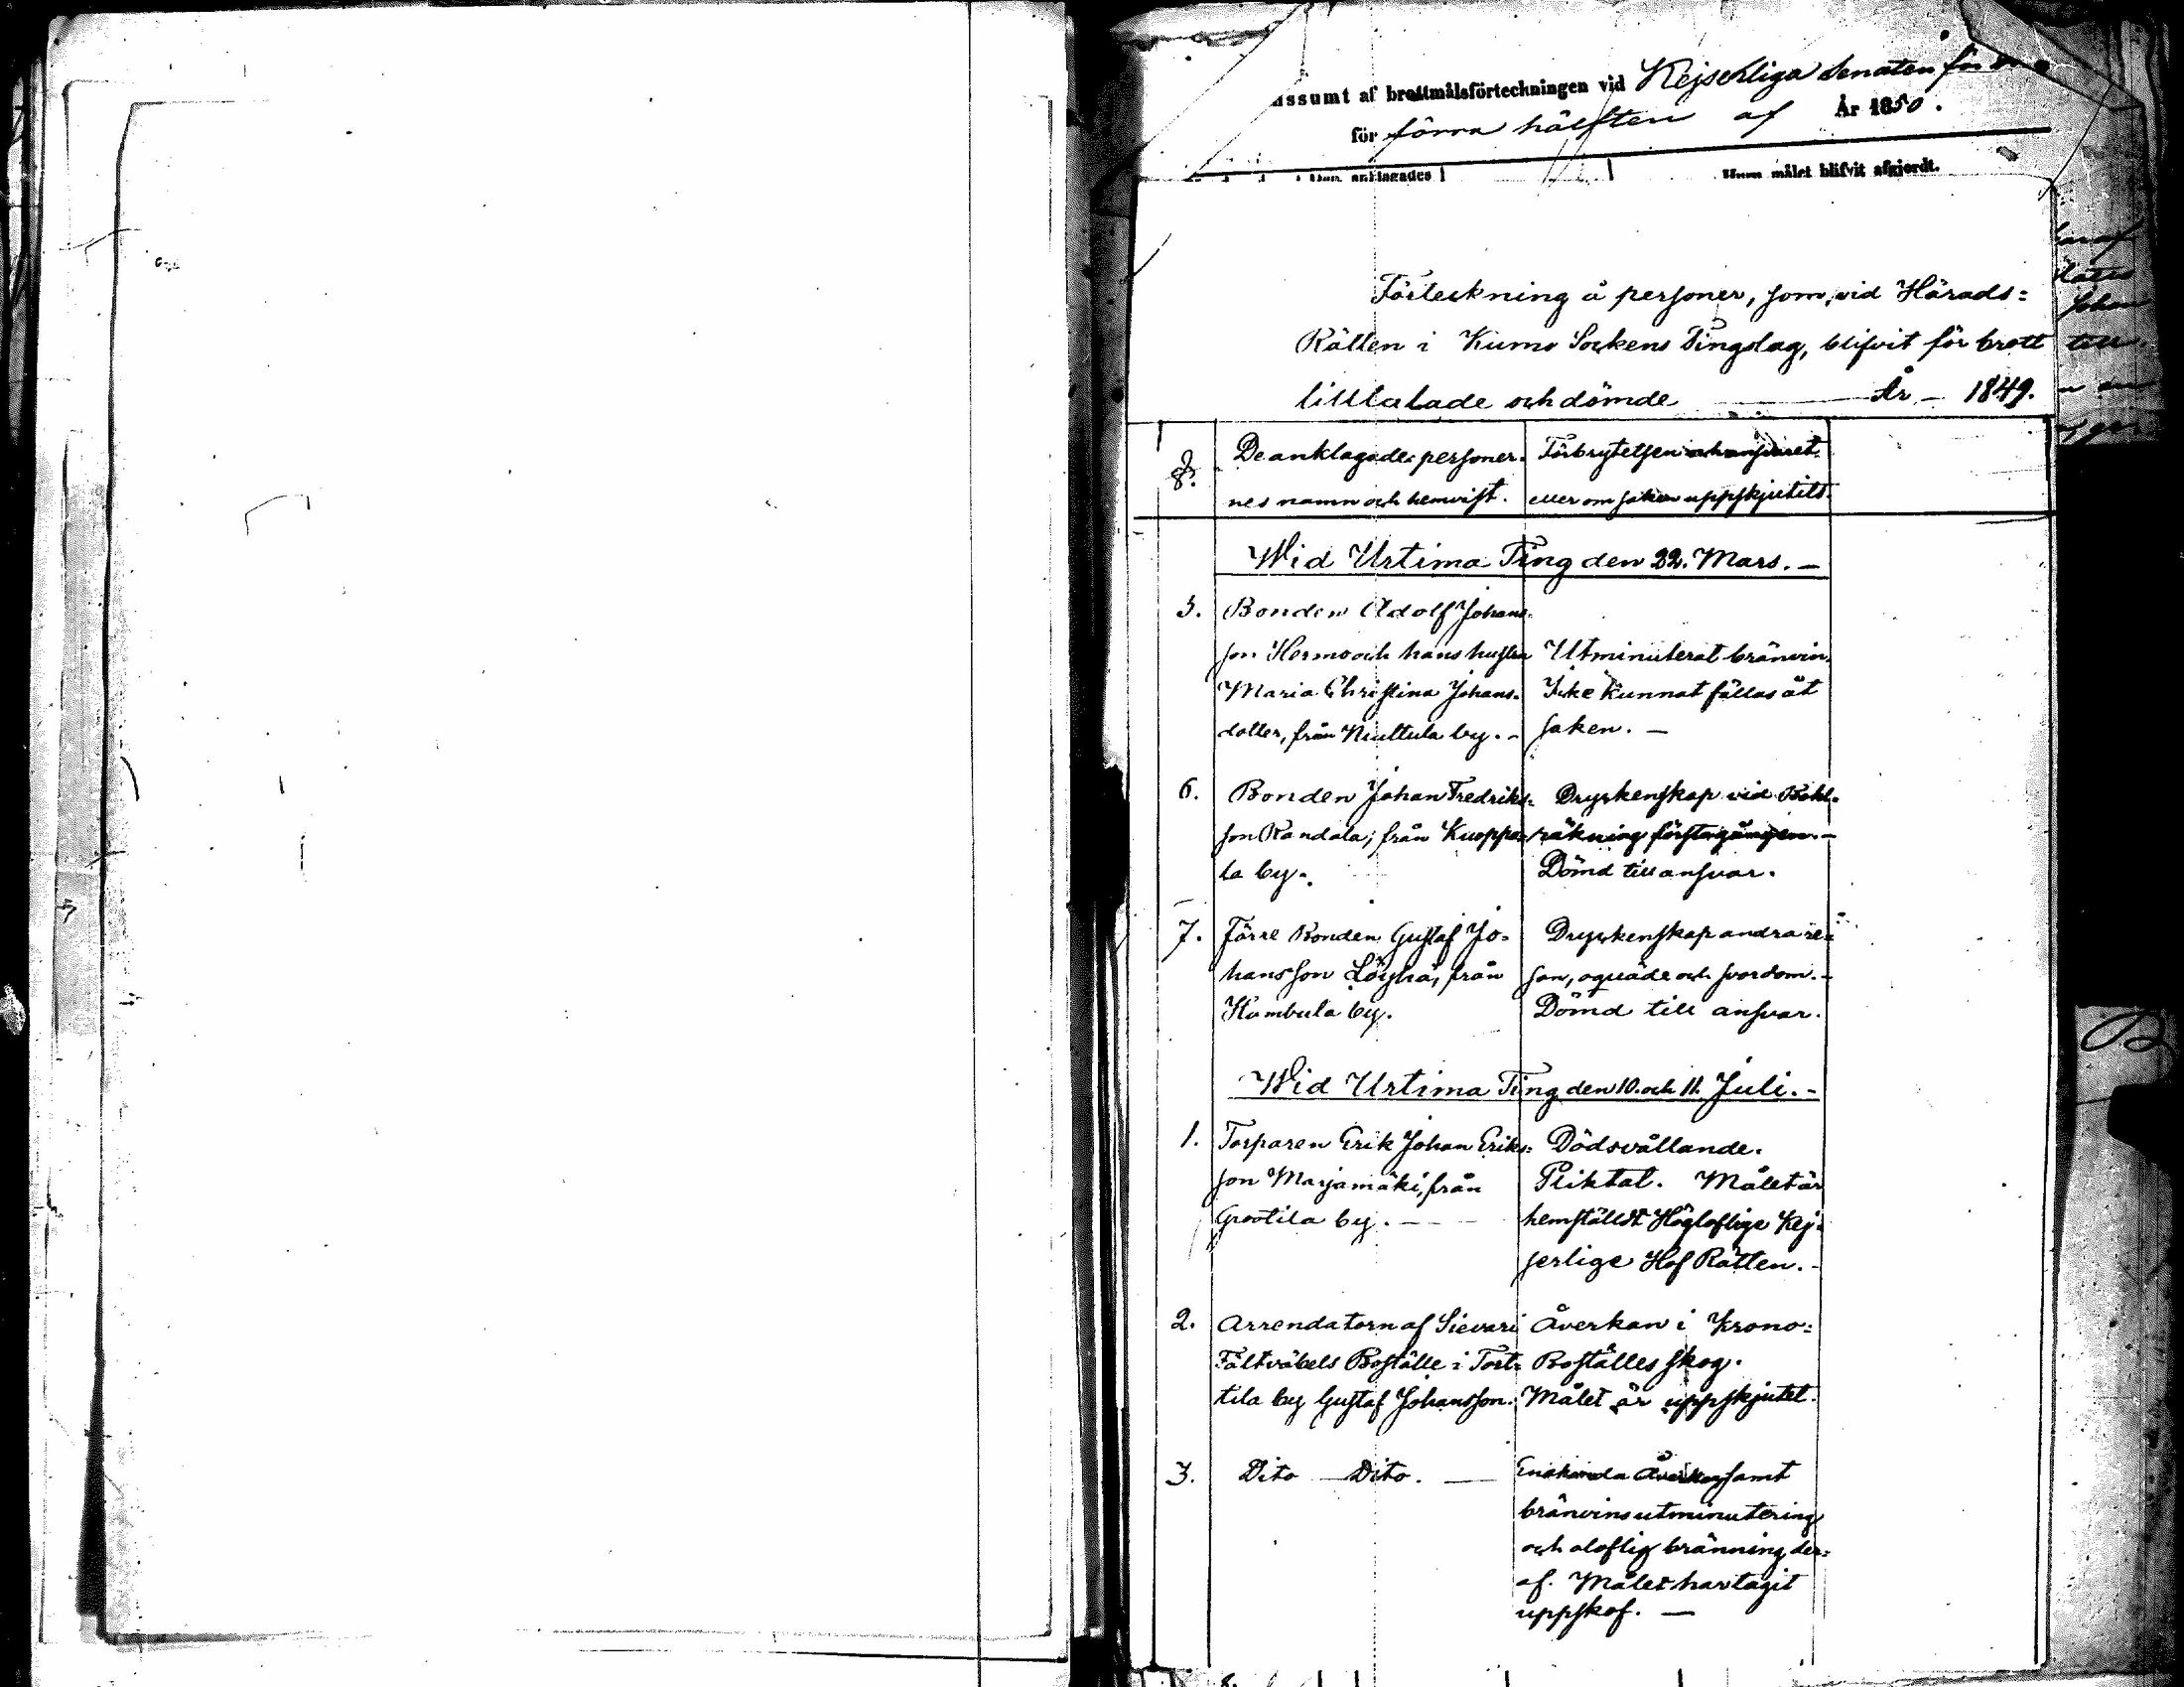 ssumt af brottmålsförteckningen vid Kejserliga Senaten för
för förra hälften af År 1850.
anklagades Hum målet blifvit afgjordt.
Förteckning å personer, som, vid Härads=
Rätten i Kumo Sockens Tingslag, blifvit för brott
tilltalade och dömde År 1849.
De anklagade personer- Förbrytelsen och ansvaret
nes namn och hemvist. eller om saken uppskjutits.
Wid Urtima Ting den 22. Mars. -
5. Bonden Adolf Johans-
son Hermo och hans hustru Utminuterat bränvin.
Maria Christina Johans- Icke kunnat fällas åt
dotter, från Niuttula by. - saken. -
6. Bonden Johan Fredriks= Dryckenskap vid Bokl-
son Randala, från Kuoppa= räkning första gången. -
la by. Dömd till ansvar.
7. Förre Bonden Gustaf Jo= Dryckenskap andra re=
hansson Löyhä, från san, oquäde och svordom. -
Kambula by. Dömd till ansvar.
Wid Urtima Ting den 10. och 11. Juli. -
1. Torparen Erik Johan Eriks= Dödsvållande.
son Marjamäki, från Pliktat. Målet är
by. - hemställdt Högloflige Kej=
serlige Hof Rätten. -
2. Arrendatorn af Sievari Åverkan i Krono=
Fältväbels Boställe i Tort= Boställes skog.
tila by Gustaf Johansson. Målet är uppskjutet.
3. Dito Dito. - Enskinda Åverkan samt
bränvinsutminutering
och oloflig bränning der=
af. Målet har tagit
uppskof. -